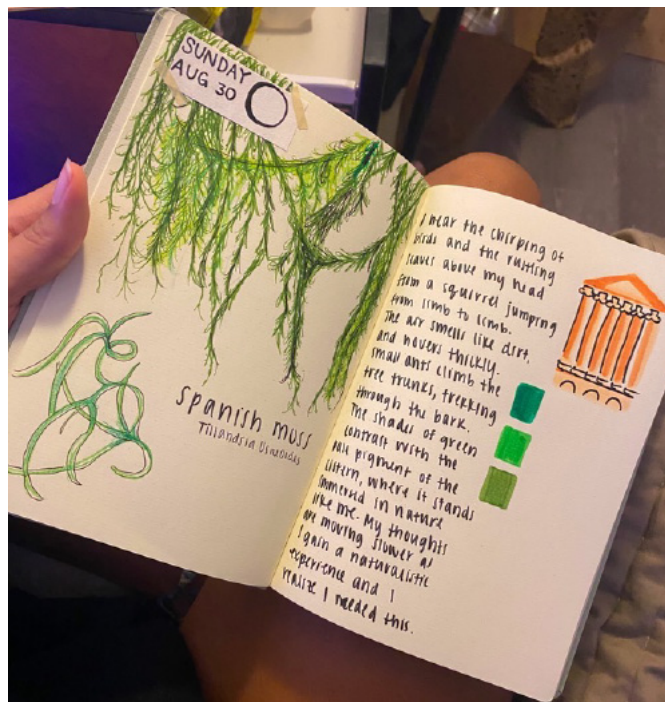 SUNDAY
AUG 30
spanish moss
Tillandsia Usneoides
I hear the chirping of
birds and the rustling
leaves above my head
from a squirrel jumping
from limb to limb.
The air smells like dirt,
and hovers thickly.
small ants climb the
tree trunks, trekking
through the bark.
The shades of green
contrast with the
pigment of the
cistern, where it stands
immersed in nature
like me. My thoughts
are moving slower as
I gain a naturalistic
experience and I
realize I needed this.